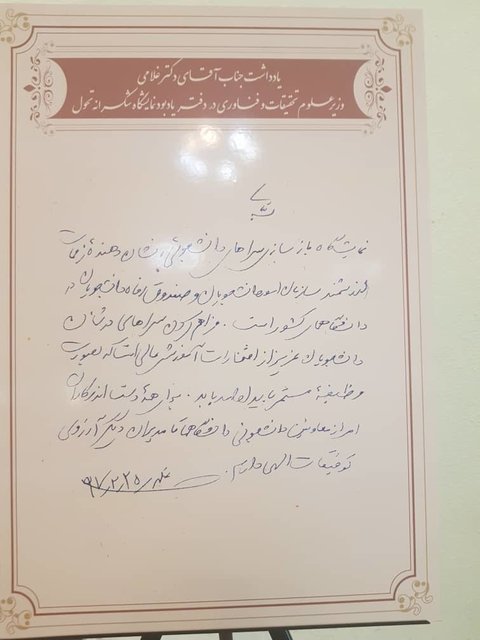 یادداشت جناب آقای دکتر غلامی
وزیر علوم تحقیقات و فناوری در دفتر یادبود نمایشگاه شکرانه تحول
نمایشگاه بازسازی سراهای دانشجوئی، نشان دهندهٔ زحمات
ارزشمند سازمان امور دانشجویان و صندوق رفاه دانشجویان در
دانشگاههای کشور است. فراهم کردن سراهای در شأن
دانشجویان عزیز از افتخارات آموزش عالی است که بصورت
وظیفهٔ مستمر باید ادامه یابد. برای همهٔ دست اندرکاران
امر از معاونین دانشجوئی دانشگاهها تا مدیران دیگر آرزوی
توفیقات الهی دارم.
۹۷،۲،۲۵